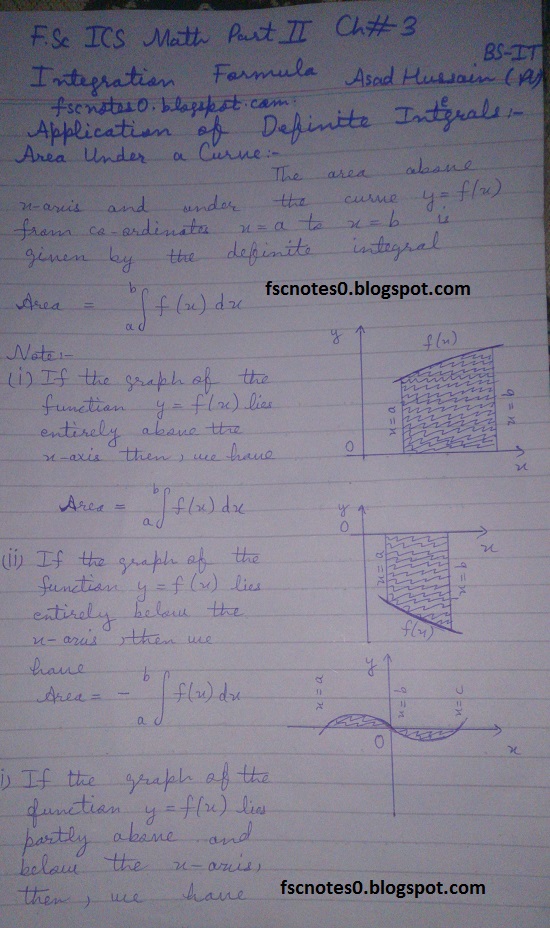 F.Sc ICS Math Part II Ch#3
BS-IT
Integration Formula Asad Hussain
fscnotes0.blogspot.com.
Application of Definite Integrals:-
Area Under a Curve:-
The area above
x-axis and under the curve y = f(x)
from co-ordinates x=a to x=b is
given by the definite integral
fscnotes0.blogspot.com
Area = a∫b f(x) dx
Note:-
(i) If the graph of the
function y = f(x) lies
entirely above the
x-axis then, we have
Area = a∫b f(x) dx
y
f(x)
x=a
x=b
0
x
(ii) If the graph of the
function y = f(x) lies
entirely below the
x-axis, then we
have
Area = - a∫b f(x) dx
y
0
x
x=a
x=b
f(x)
y
x=a
x=b
x=c
0
x
i) If the graph of the
function y = f(x) lies
partly above and
below the x-axis,
then, we have
fscnotes0.blogspot.com